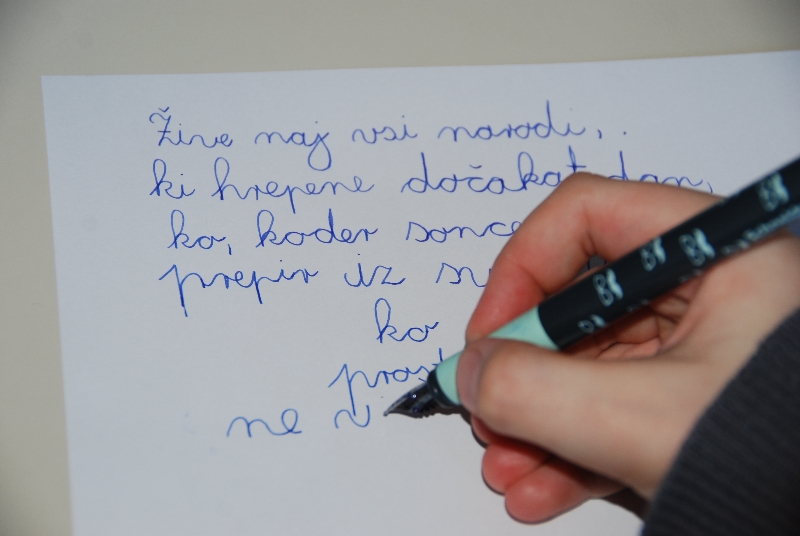 Žive naj vsi narodi, .
ki hrepene dočakat dan,
ko, koder sonce
prepir iz
ko
ne v